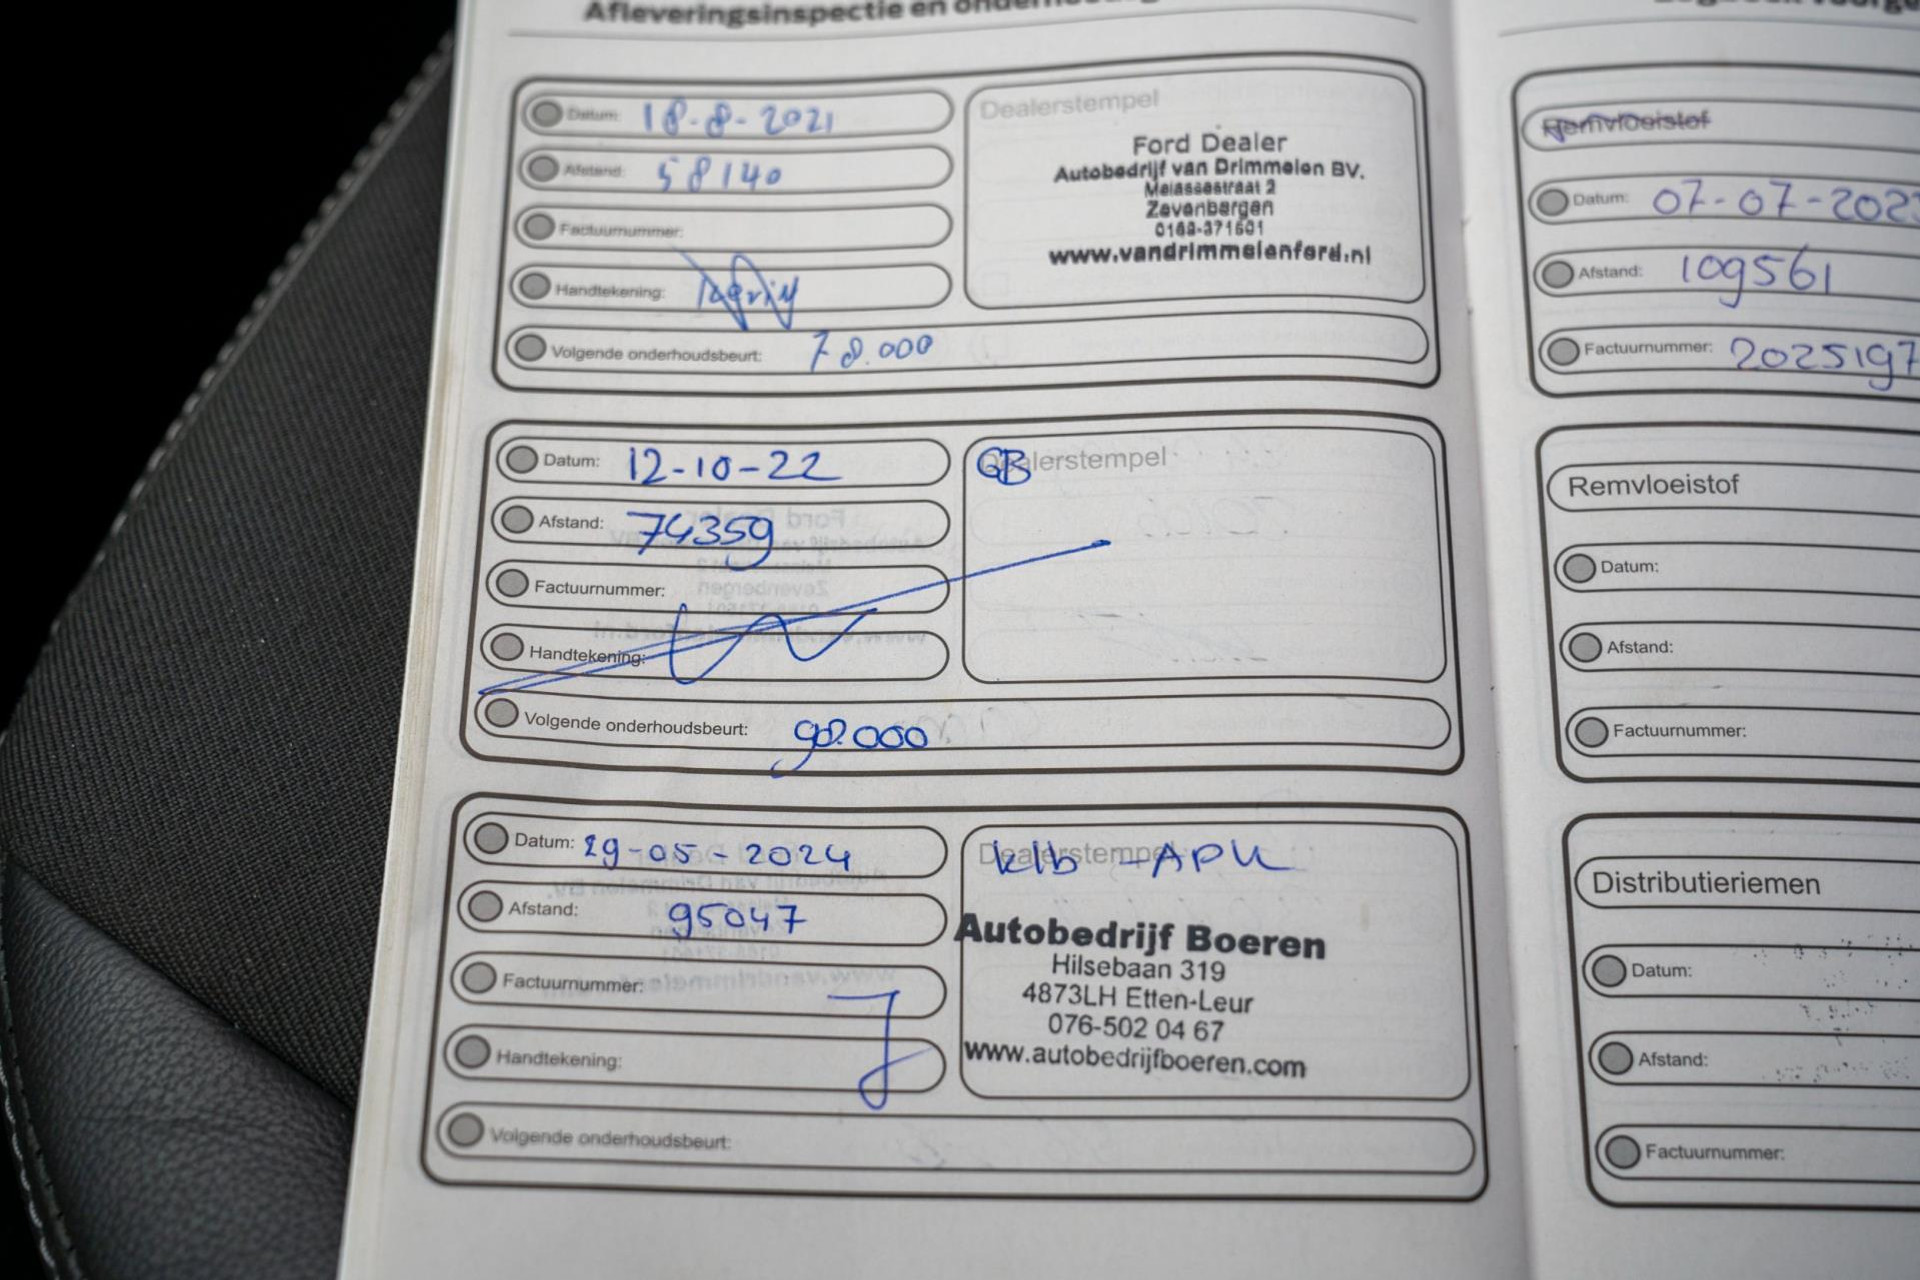 Afleveringsinspectie en
Datum: 18-8-2021
Afstand: 58140
Factuurnummer:
Handtekening:
Volgende onderhoudsbeurt: 78.000
Dealerstempel
Ford Dealer
Autobedrijf van Drimmelen BV.
Melassestraat 2
Zevenbergen
0168-371601
www.vandrimmelenford.nl
Datum: 12-10-22
Afstand: 74359
Factuurnummer:
Handtekening:
Volgende onderhoudsbeurt: 90.000
Dealerstempel
GB
Datum: 29-05-2024
Afstand: 95047
Factuurnummer:
Handtekening:
Volgende onderhoudsbeurt:
Dealerstempel
klb - APK
Autobedrijf Boeren
Hilsebaan 319
4873LH Etten-Leur
076-502 04 67
www.autobedrijfboeren.com
Remvloeistof
Datum: 07-07-202
Afstand: 109561
Factuurnummer: 2025197
Remvloeistof
Datum:
Afstand:
Factuurnummer:
Distributieriemen
Datum:
Afstand:
Factuurnummer: